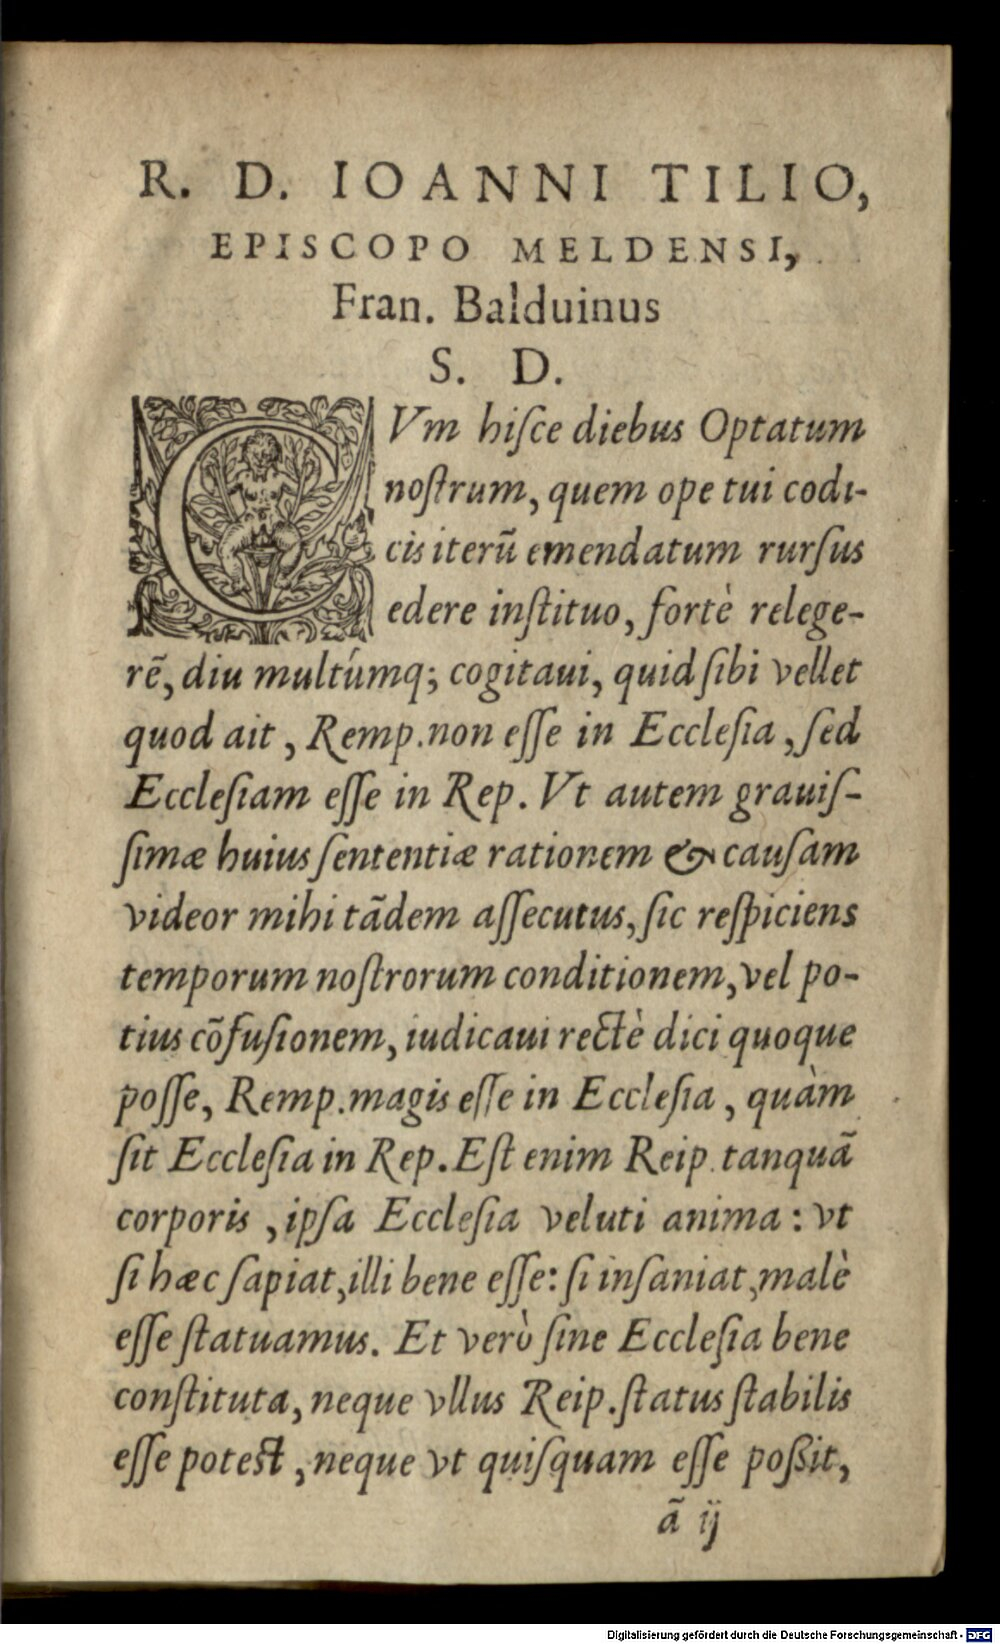 R. D. IOANNI TILIO,
EPISCOPO MELDENSI,
Fran. Balduinus
S. D.
CVm hiſce diebus Optatum
noſtrum, quem ope tui codi-
cis iterũ emendatum rurſus
edere inſtituo, fortè relege-
rẽ, diu multúmq; cogitaui, quid ſibi vellet
quod ait, Remp. non eſſe in Eccleſia, ſed
Eccleſiam eſſe in Rep. Vt autem grauiſ-
ſimæ huius ſententiæ rationem & cauſam
videor mihi tãdem aſſecutus, ſic reſpiciens
temporum noſtrorum conditionem, vel po-
tius cõfuſionem, iudicaui rectè dici quoque
poſſe, Remp. magis eſſe in Eccleſia, quàm
ſit Eccleſia in Rep. Eſt enim Reip. tanquã
corporis, ipſa Eccleſia veluti anima: vt
ſi hæc ſapiat, illi bene eſſe: ſi inſaniat, malè
eſſe ſtatuamus. Et verò ſine Eccleſia bene
conſtituta, neque vllus Reip. ſtatus ſtabilis
eſſe poteſt, neque vt quiſquam eſſe poßit,
ã ij
Digitalisierung gefördert durch die Deutsche Forschungsgemeinschaft - DFG